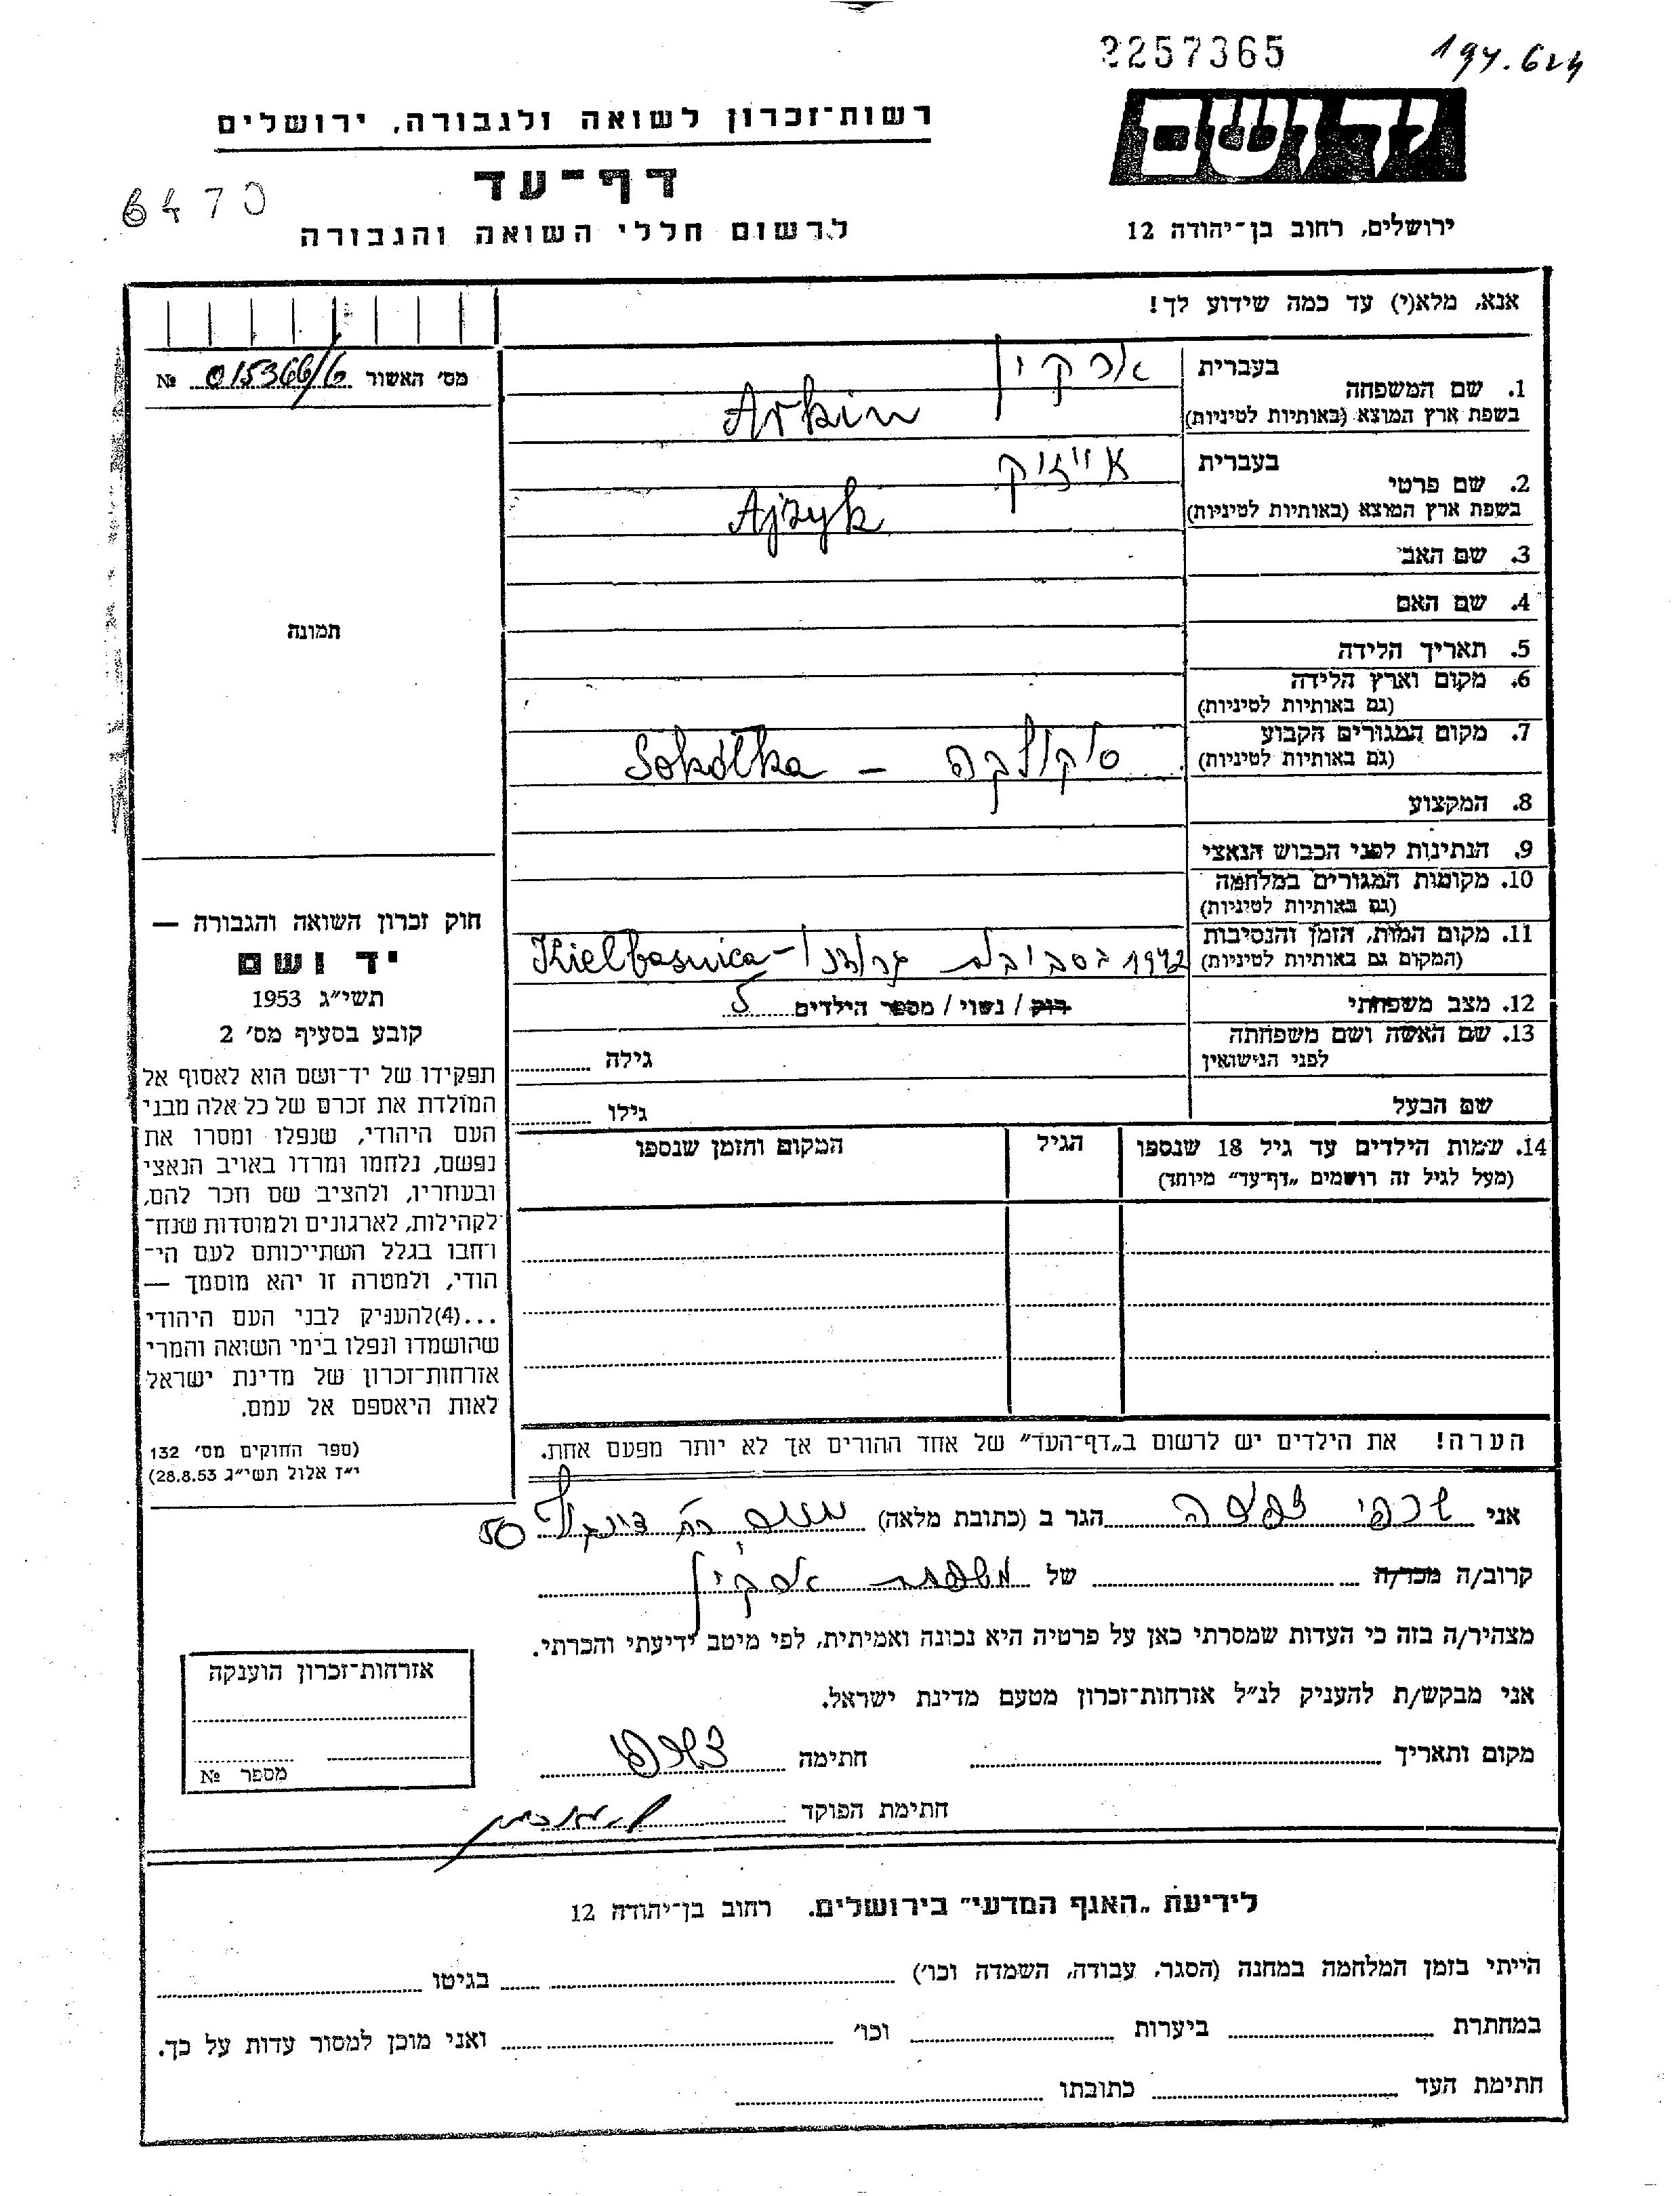 2257365
194.624
יד ושם
רשות־זכרון לשואה ולגבורה, ירושלים
דף־עד
6470
לרשום חללי השואה והגבורה
ירושלים, רחוב בן־יהודה 12
אנא, מלא(י) עד כמה שידוע לך!
מס' האשור 015366/6 №
תמונה
1. שם המשפחה
בעברית ארקין
בשפת ארץ המוצא (באותיות לטיניות) Arkin
2. שם פרטי
בעברית אייזיק
בשפת ארץ המוצא (באותיות לטיניות) Ajzyk
3. שם האב
4. שם האם
5. תאריך הלידה
6. מקום וארץ הלידה
(גם באותיות לטיניות)
7. מקום המגורים הקבוע
(גם באותיות לטיניות) סוקולקה - Sokółka
8. המקצוע
9. הנתינות לפני הכבוש הנאצי
10. מקומות המגורים במלחמה
(גם באותיות לטיניות)
11. מקום המות, הזמן והנסיבות
(המקום גם באותיות לטיניות) 1942 בסביבת גרודנו - Kielbasnica
12. מצב משפחתי רוק / נשוי / מספר הילדים 5
13. שם האשה ושם משפחתה
לפני הנישואין גילה
שם הבעל גילו
14. שמות הילדים עד גיל 18 שנספו הגיל המקום והזמן שנספו
(מעל לגיל זה רושמים „דף־עד" מיוחד)
הערה! את הילדים יש לרשום ב„דף־העד" של אחד ההורים אך לא יותר מפעם אחת.
חוק זכרון השואה והגבורה —
יד ושם
תשי"ג 1953
קובע בסעיף מס' 2
תפקידו של יד־ושם הוא לאסוף אל
המולדת את זכרם של כל אלה מבני
העם היהודי, שנפלו ומסרו את
נפשם, נלחמו ומרדו באויב הנאצי
ובעוזריו, ולהציב שם וזכר להם,
לקהילות, לארגונים ולמוסדות שנח־
רחבו בגלל השתייכותם לעם הי־
הודי, ולמטרה זו יהא מוסמך —
...(4)להעניק לבני העם היהודי
שהושמדו ונפלו בימי השואה והמרי
אזרחות־זכרון של מדינת ישראל
לאות היאספם אל עמם.
(ספר החוקים מס' 132
י"ז אלול תשי"ג 28.8.53)
אני שרפי הגר ב (כתובת מלאה) 50
קרוב/ה מכר/ה של משפחת ארקין
מצהיר/ה בזה כי העדות שמסרתי כאן על פרטיה היא נכונה ואמיתית, לפי מיטב ידיעתי והכרתי.
אני מבקש/ת להעניק לנ"ל אזרחות־זכרון מטעם מדינת ישראל.
מקום ותאריך חתימה
חתימת הפוקד
אזרחות־זכרון הוענקה
מספר №
לידיעת „האגף המדעי" בירושלים. רחוב בן־יהודה 12
הייתי בזמן המלחמה במחנה (הסגר, עבודה, השמדה וכו') בגיטו
במחתרת ביערות וכו' ואני מוכן למסור עדות על כך.
חתימת העד כתובתו